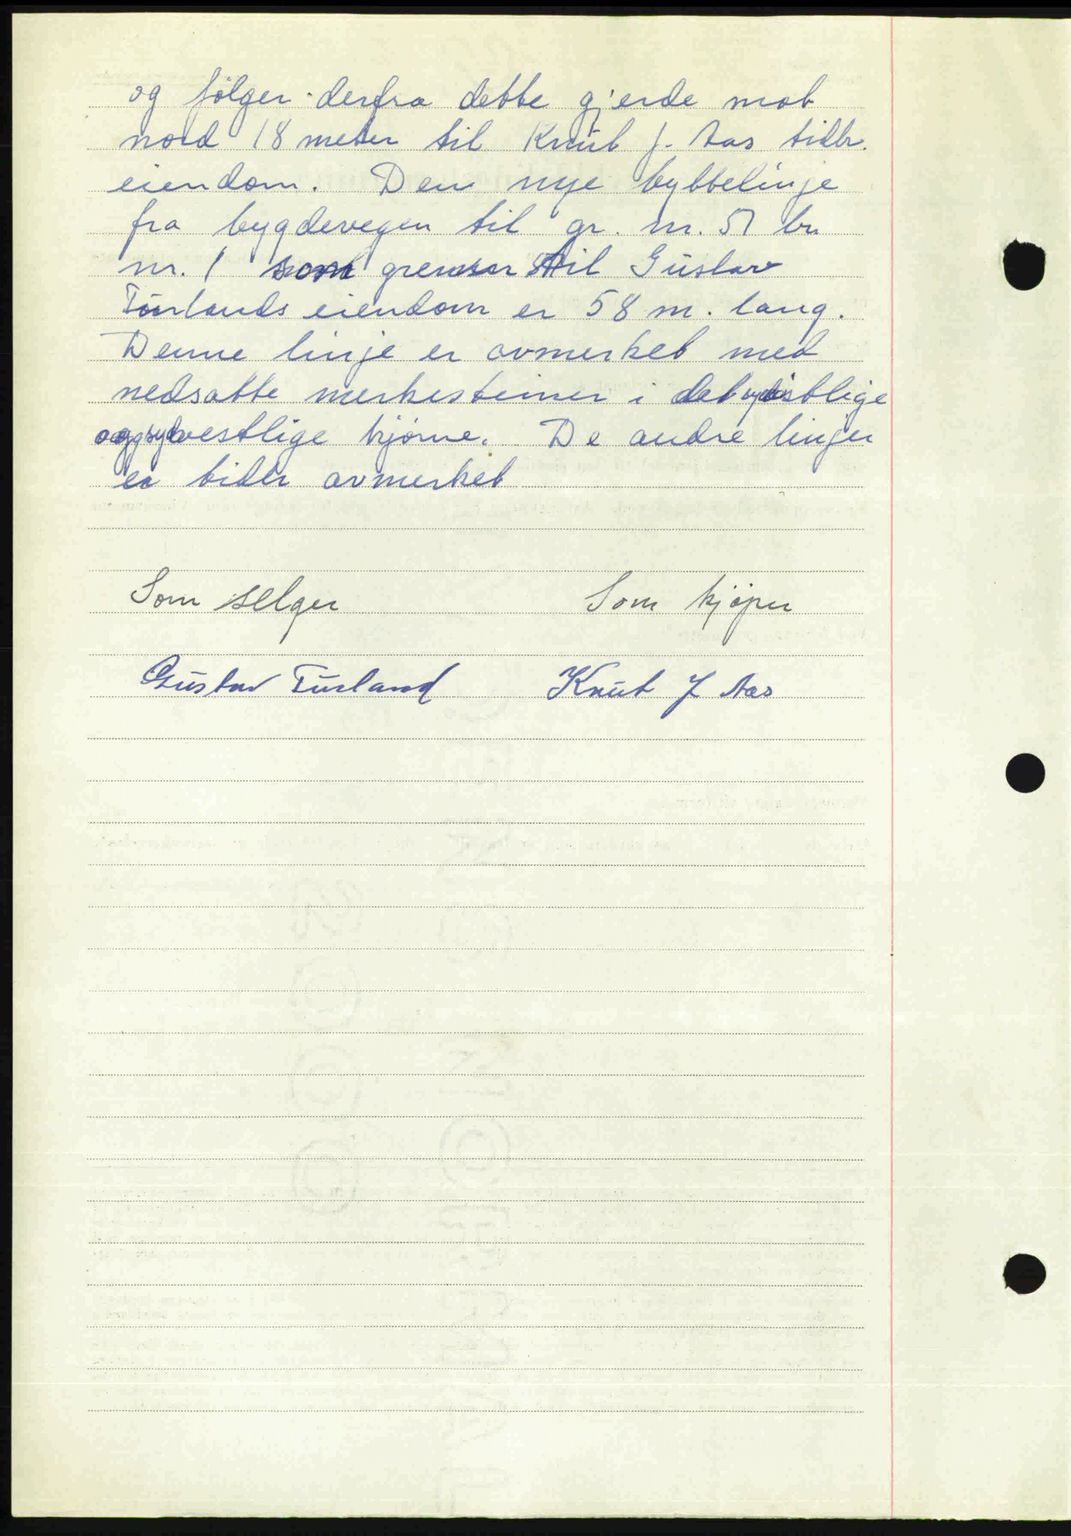 og følger derfra dette gjerde mot
nord 18 meter til Knut J. Aas tidlr.
eiendom. Den nye byttelinje
fra bygdevegen til gr. nr. 57 br.
nr. 1 som grenser til Gustav
Turlands eiendom er 58 m. lang.
Denne linje er avmerket med
nedsatte merkesteiner i det sydøstlige
og sydvestlige hjørne. De andre linjer
er tidlr avmerket
Som selger Som kjøper
Gustav Turland Knut J Aas